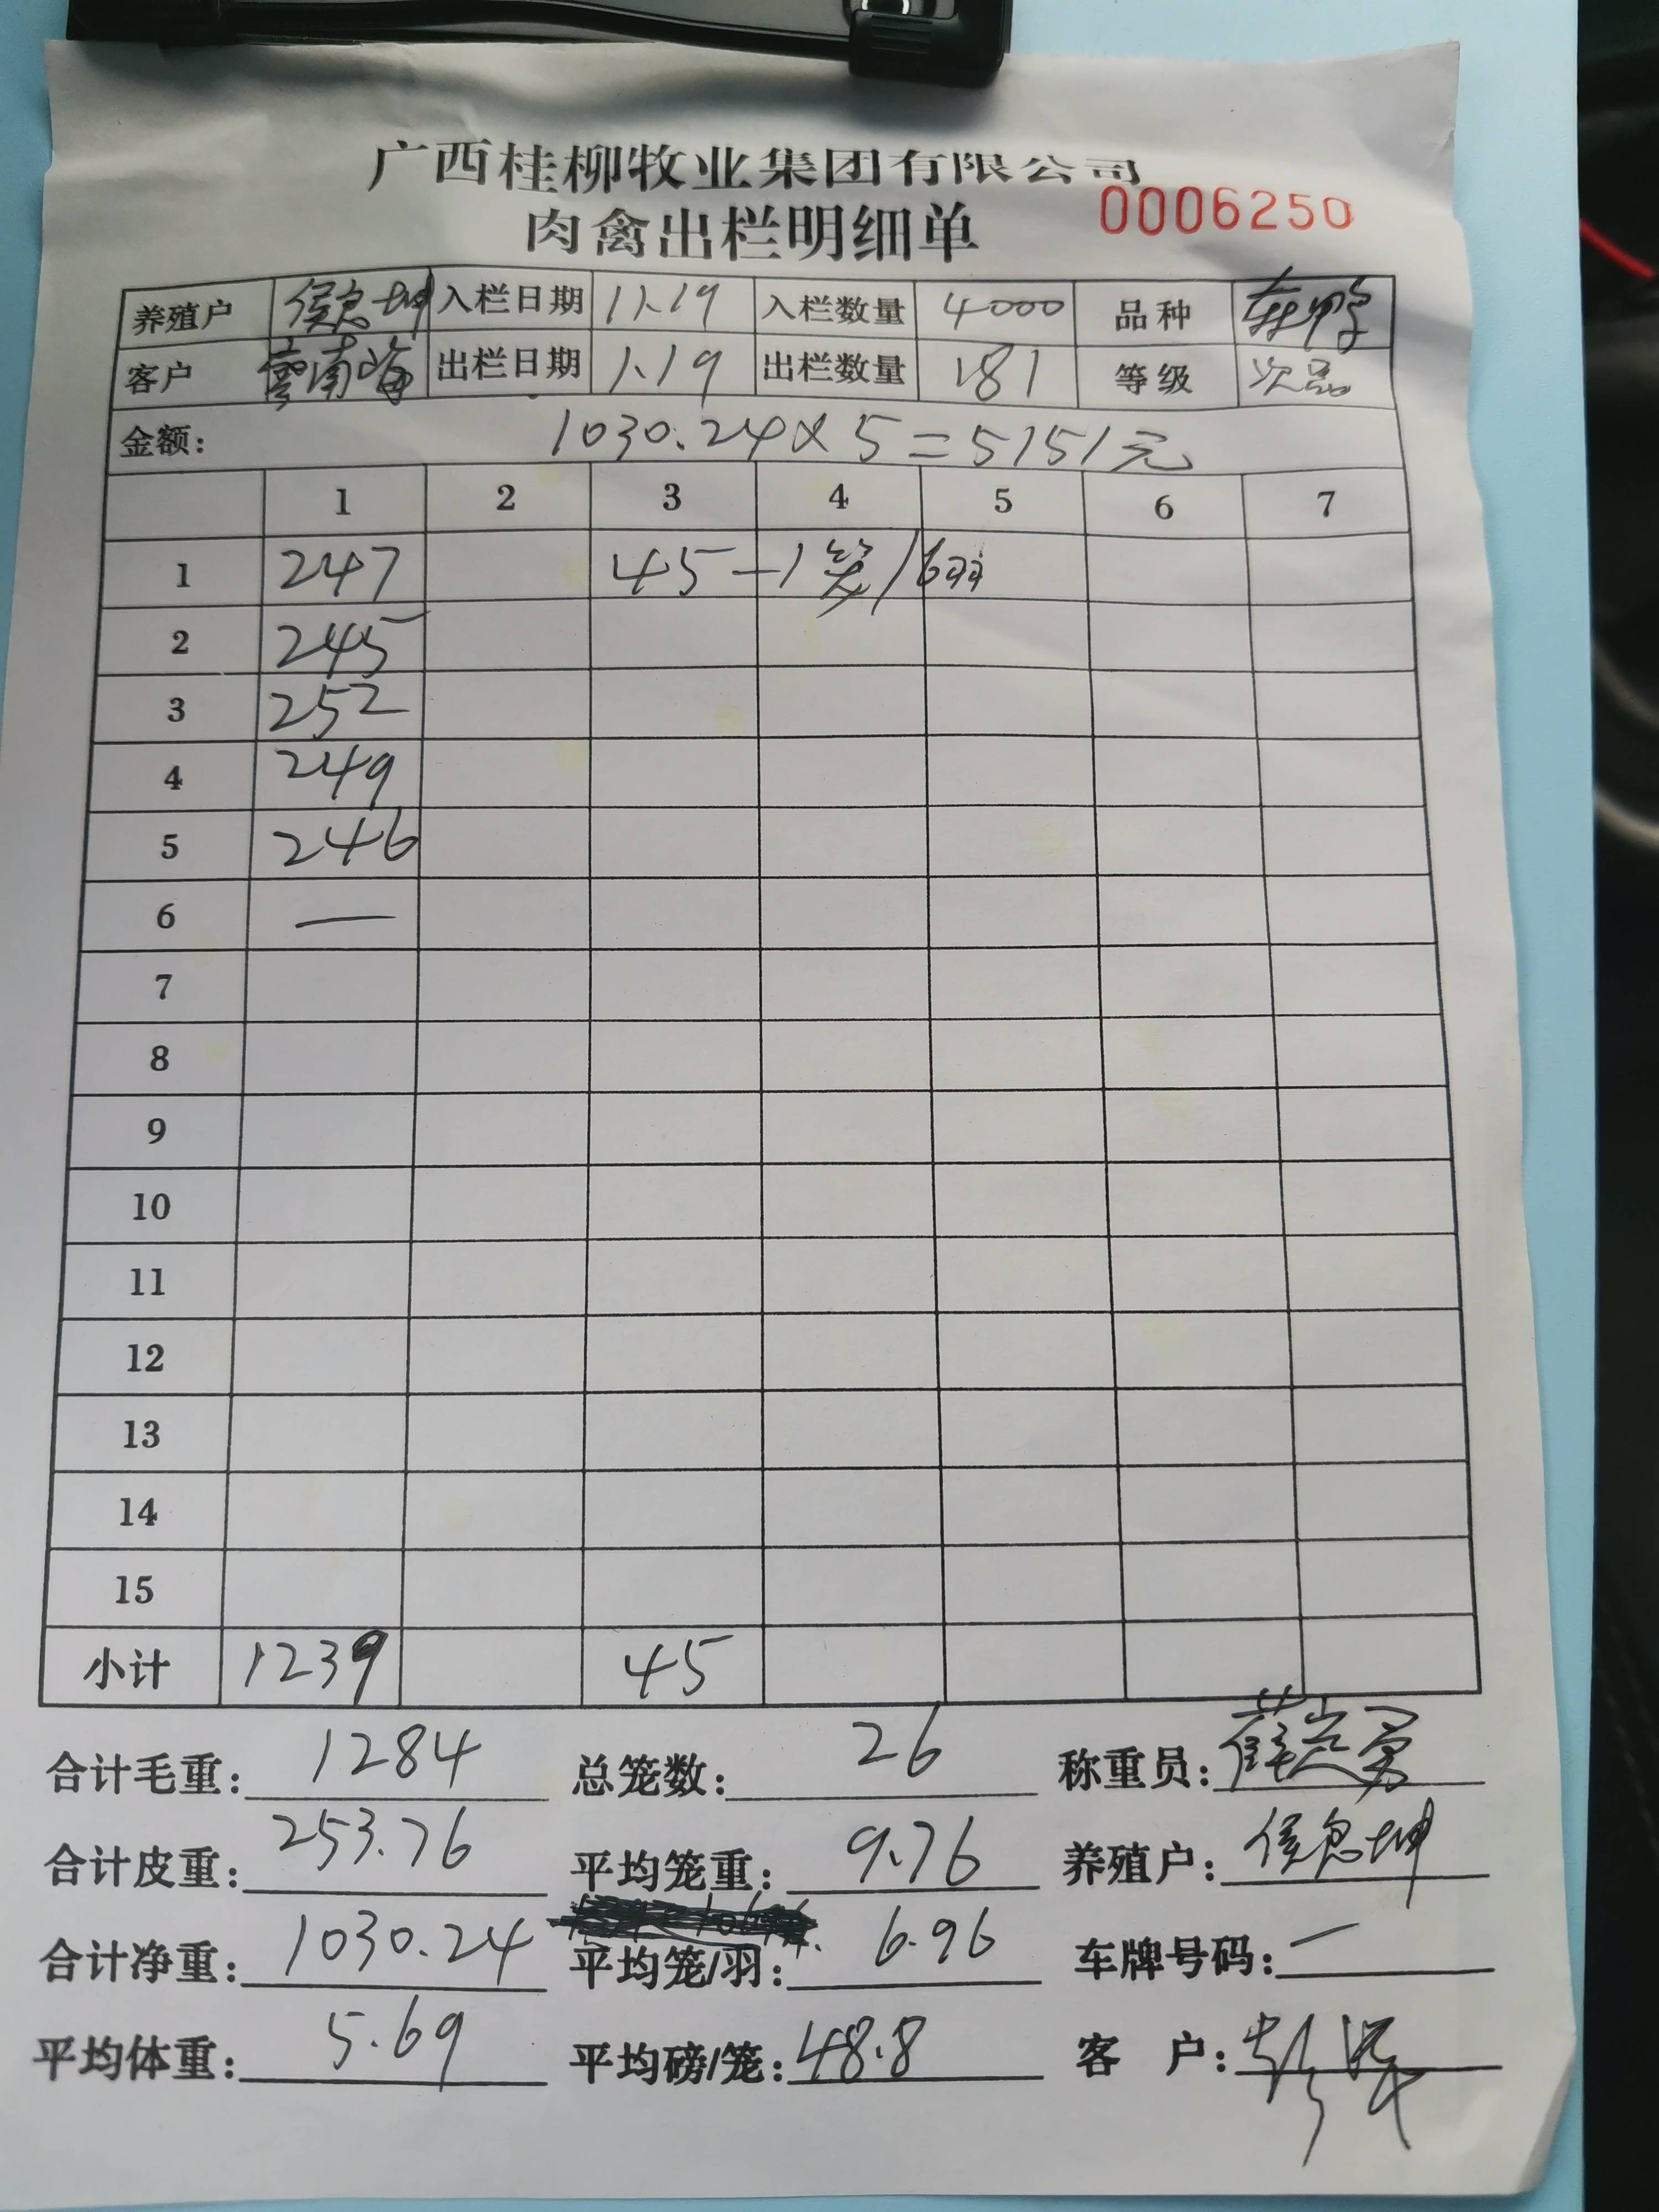 广西桂柳牧业集团有限公司
肉禽出栏明细单 0006250
养殖户 侯忠坤 入栏日期 11.19 入栏数量 4000 品种
客户 雲南海 出栏日期 1.19 出栏数量 181 等级 次品
金额: 1030.24×5=5151元
1 2 3 4 5 6 7
1 247 45-1笼/6羽
2 245
3 252
4 249
5 246
6 —
7
8
9
10
11
12
13
14
15
小计 1239 45
合计毛重: 1284 总笼数: 26 称重员:
合计皮重: 253.76 平均笼重: 9.76 养殖户: 侯忠坤
合计净重: 1030.24 平均笼/羽: 6.96 车牌号码: —
平均体重: 5.69 平均磅/笼: 48.8 客 户: